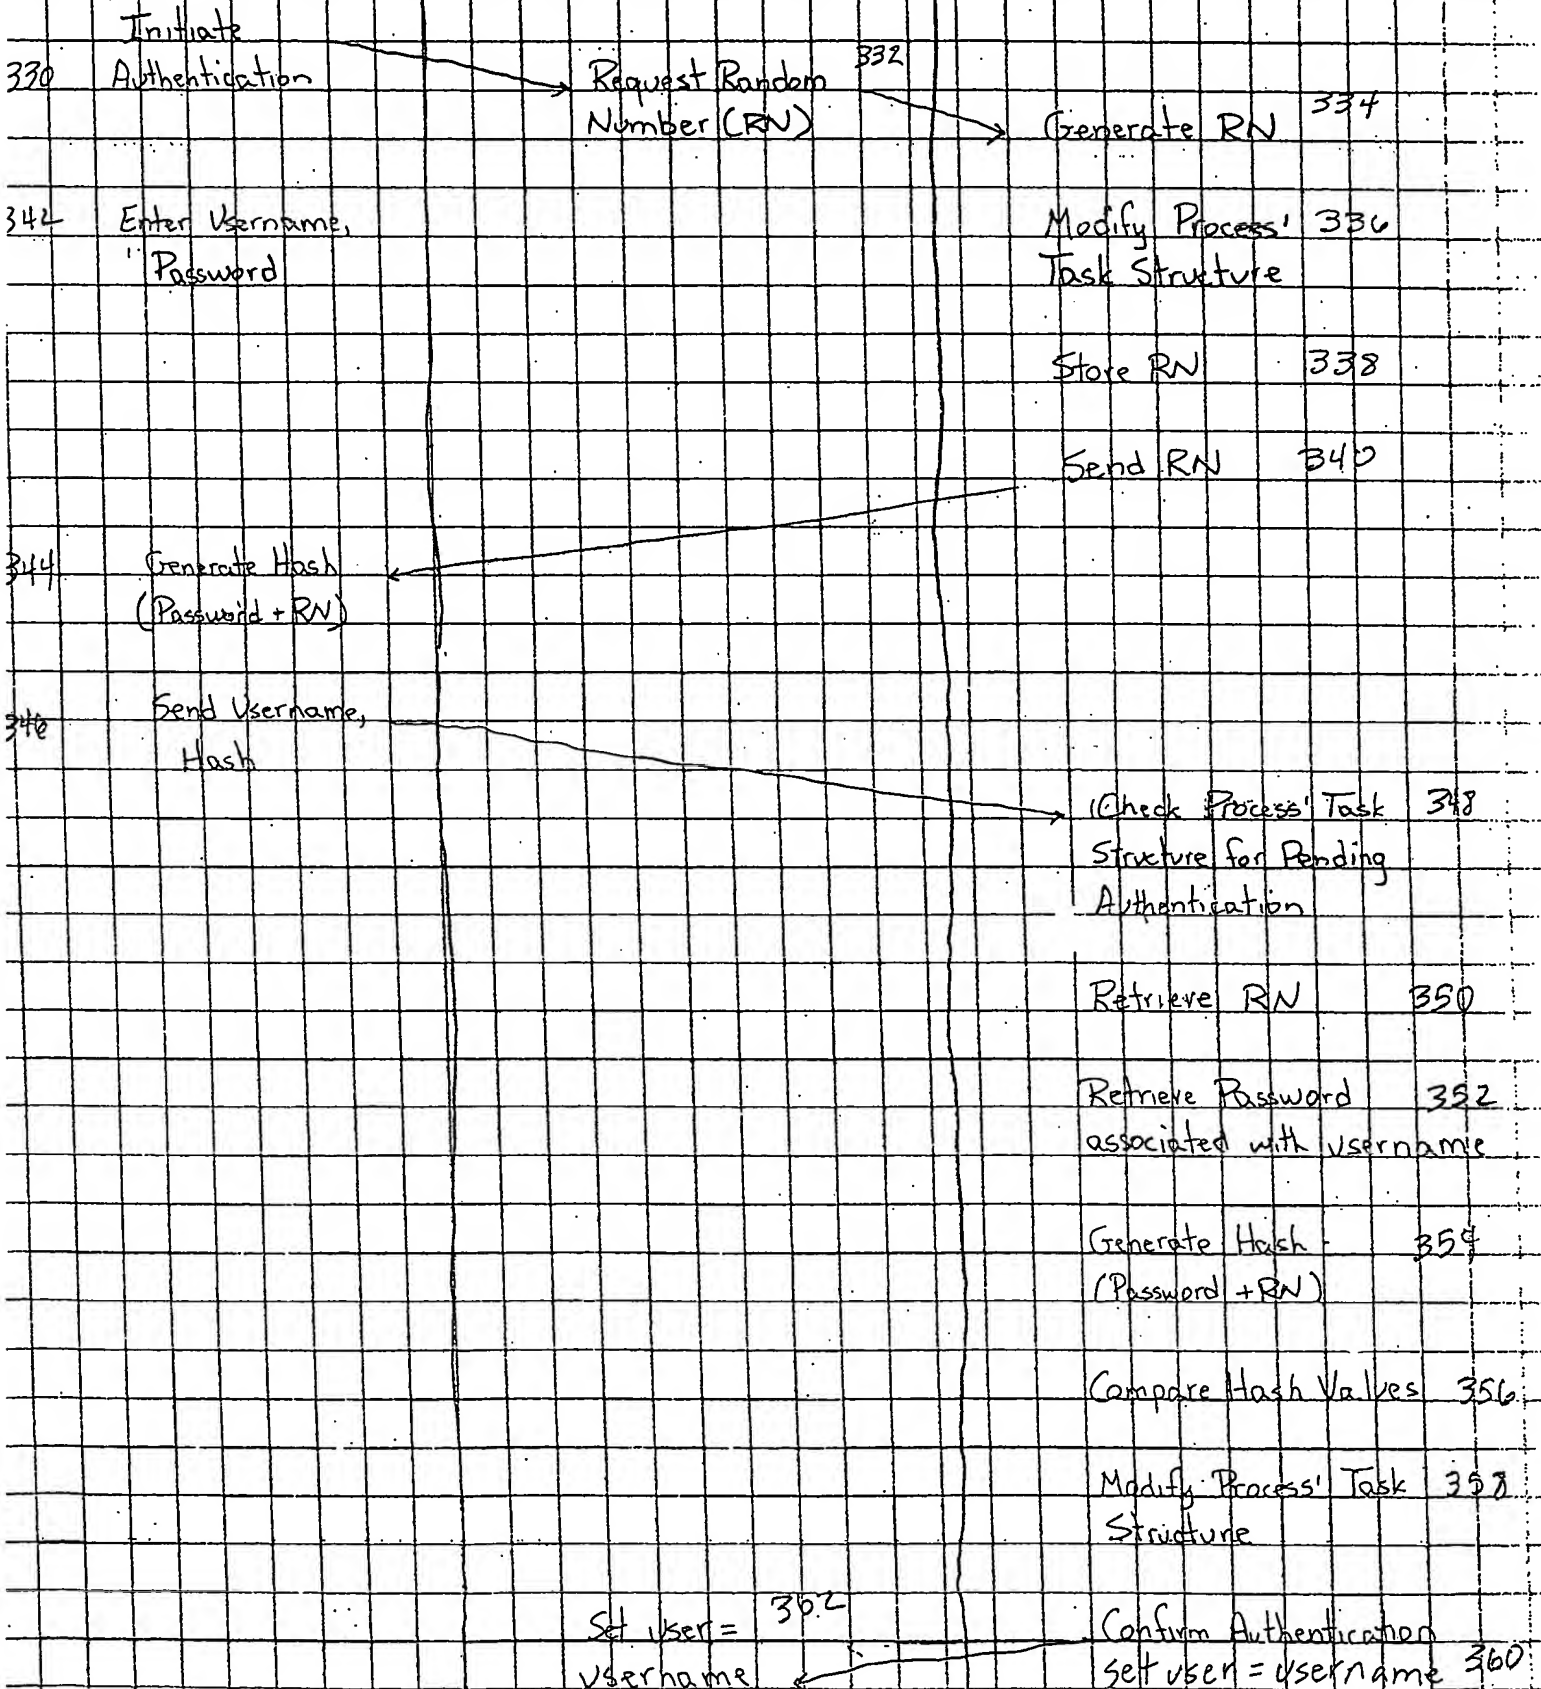 Initiate
330 Authentication
Request Random 332
Number (RN)
Generate RN 334
342 Enter Username,
Password
Modify Process' 336
Task Structure
Store RN 338
Send RN 340
344 Generate Hash
(Password + RN)
346 Send Username,
Hash
Check Process' Task 348
Structure for Pending
Authentication
Retrieve RN 350
Retrieve Password 352
associated with username
Generate Hash 354
(Password + RN)
Compare Hash Values 356
Modify Process' Task 358
Structure
Confirm Authentication
set user = username 360
Set user = 362
username